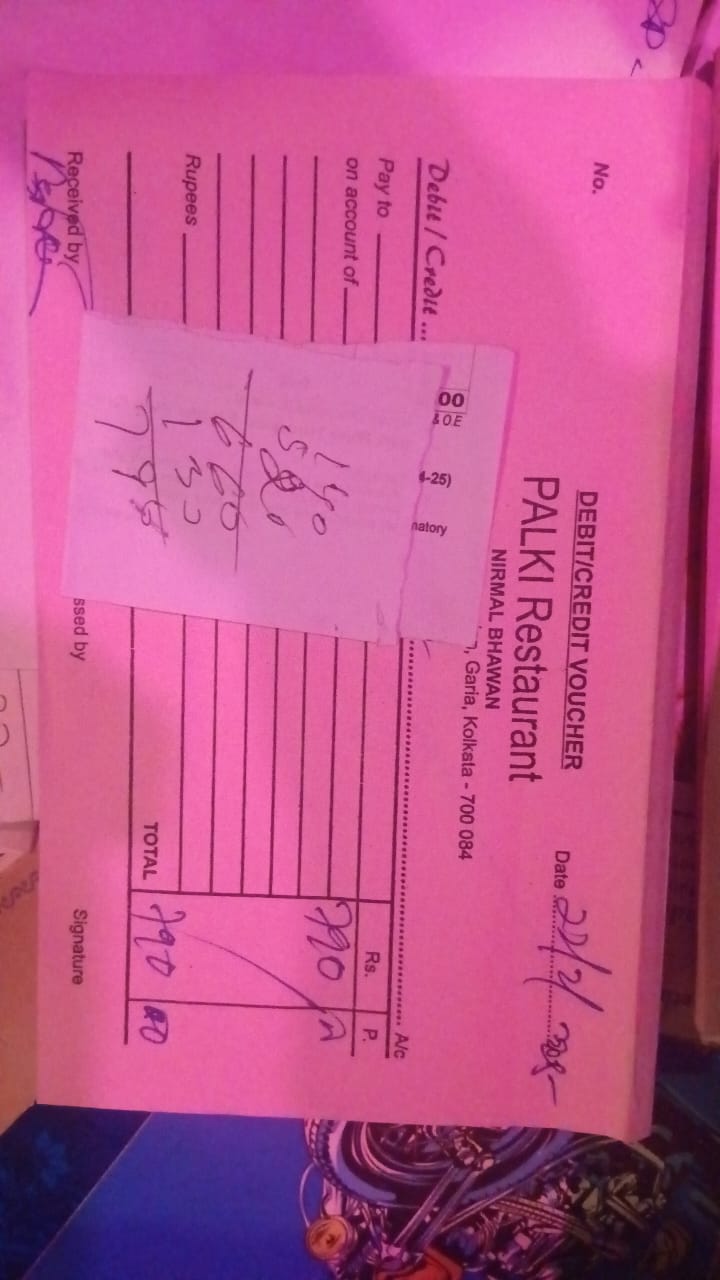 DEBIT/CREDIT VOUCHER
No.
Date
PALKI Restaurant
NIRMAL BHAWAN
, Garia, Kolkata - 700 084
Debit / Credit ...
A/c
Pay to
Rs.
P.
on account of
790
Rupees
TOTAL
790 00
Received by
ssed by
Signature
00
& O.E
-25)
natory
140
520
660
130
790